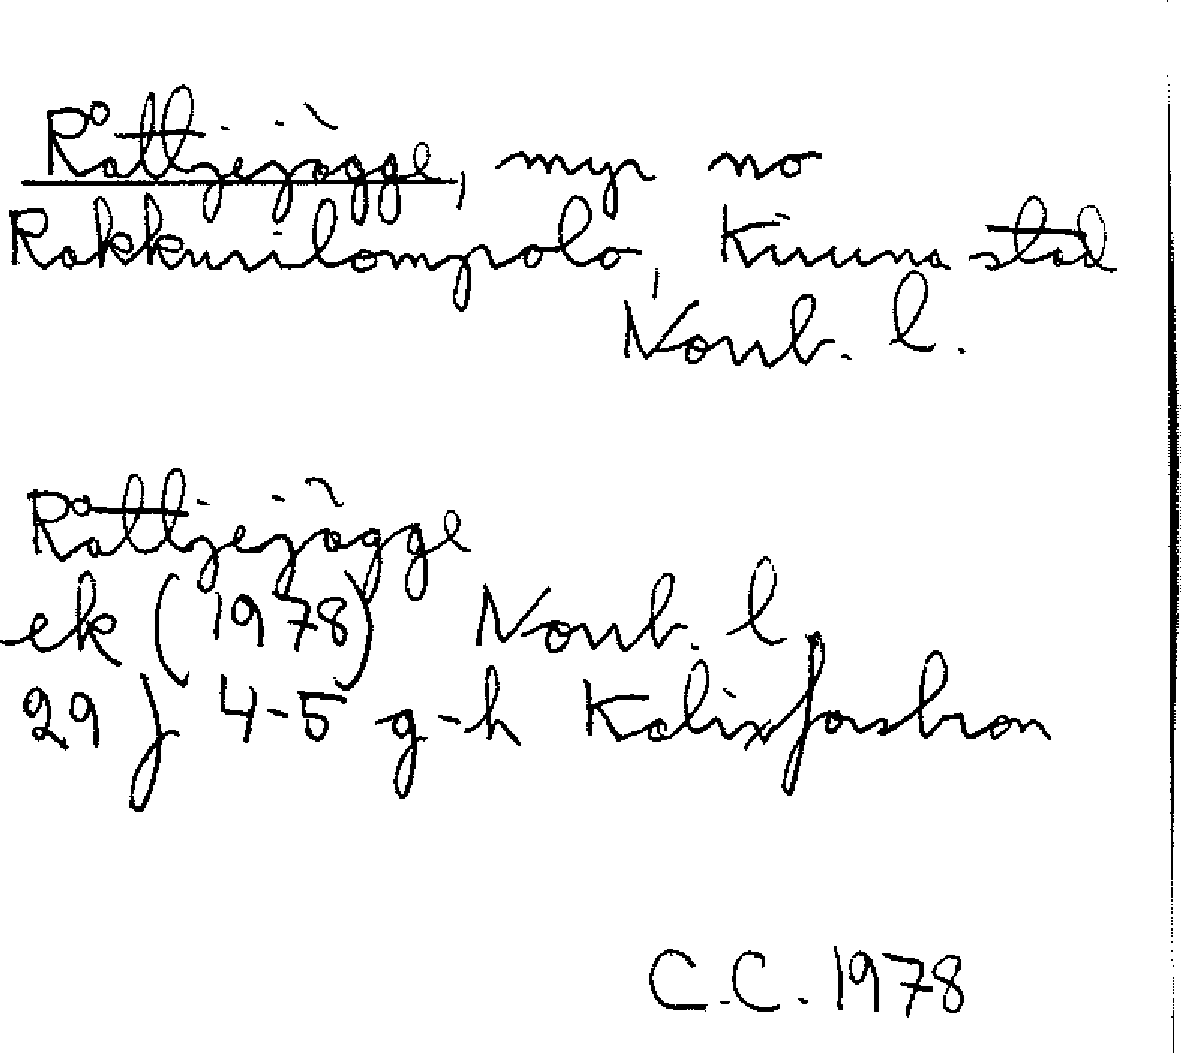 Råttjejågge, myr no
Rakkurilompolo, Kiruna stad
Norrb. l.
Råttjejågge
ek (1978) Norrb. l
29 J 4-5 g-h Kalixforsbron
C.C. 1978